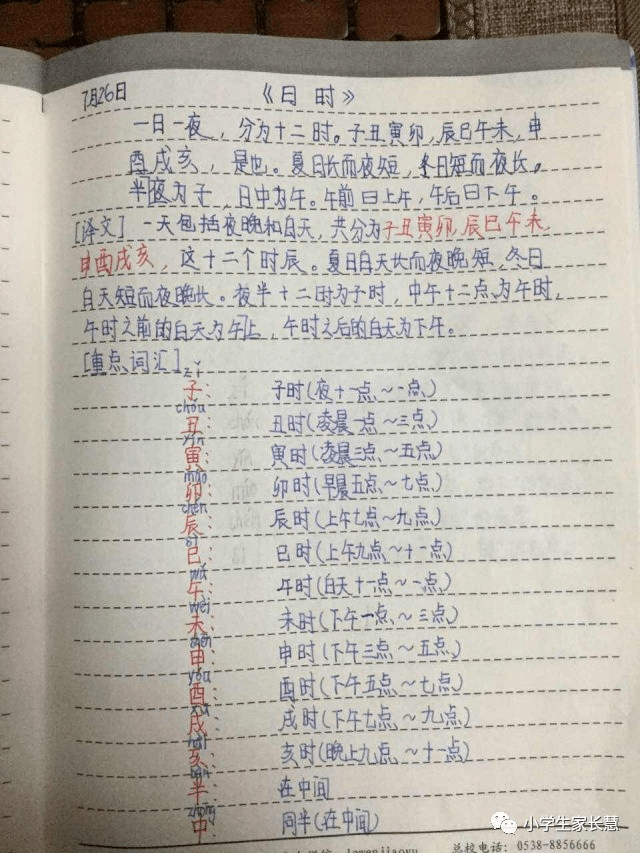 7月26日 《日时》
一日一夜，分为十二时。子丑寅卯，辰巳午未，申
酉戌亥，是也。夏日长而夜短，冬日短而夜长。
半夜为子，日中为午。午前曰上午，午后曰下午。
[译文] 一天包括夜晚和白天，共分为子丑寅卯，辰巳午未，
申酉戌亥，这十二个时辰。夏日白天长而夜晚短，冬日
白天短而夜晚长。夜半十二时为子时，中午十二点为午时，
午时之前的白天为午上，午时之后的白天为下午。
[重点词汇]
zǐ
子： 子时(夜十一点～一点)
chǒu
丑： 丑时(凌晨一点～三点)
yín
寅： 寅时(凌晨三点～五点)
mǎo
卯： 卯时(早晨五点～七点)
chén
辰： 辰时(上午七点～九点)
sì
巳： 巳时(上午九点～十一点)
wǔ
午： 午时(白天十一点～一点)
wèi
未： 未时(下午一点～三点)
shēn
申： 申时(下午三点～五点)
yǒu
酉： 酉时(下午五点～七点)
xū
戌： 戌时(下午七点～九点)
hài
亥： 亥时(晚上九点～十一点)
bàn
半： 在中间
zhōng
中： 同半(在中间)
小学生家长慧
lewenjiaoyu 总校电话：0538-8856666